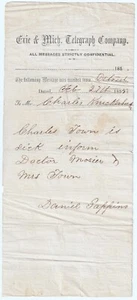 Erie & Mich. Telegraph Company.
ALL MESSAGES STRICTLY CONFIDENTIAL.
185
The following Message was received from Detroit
Dated Feb 27th 185
To M Charles
Charles Town is
sick inform
Doctor Mosier &
Mrs Town
Daniel Pappins